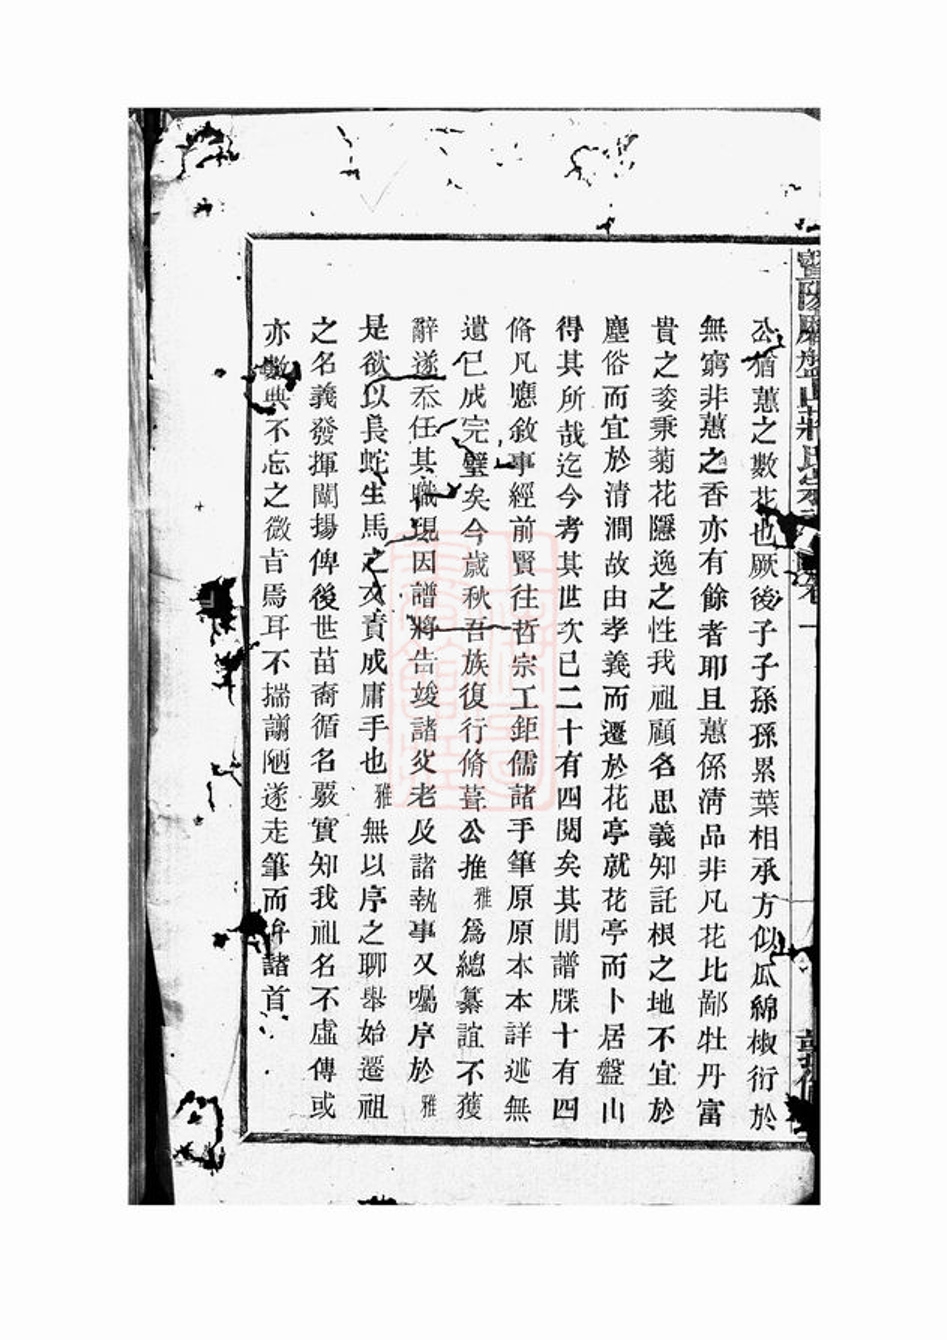 公猶蕙之數花也厥後子子孫孫累葉相承方似瓜綿椒衍於
無窮非蕙之香亦有餘者耶且蕙係清品非凡花比鄙牡丹富
貴之姿秉菊花隱逸之性我祖顧名思義知託根之地不宜於
塵俗而宜於清澗故由孝義而遷於花亭就花亭而卜居盤山
得其所哉迄今考其世次已二十有四閱矣其間譜牒十有四
脩凡應敘事經前賢往哲宗工鉅儒諸手筆原原本本詳述無
遺已成完璧矣今歲秋吾族復行脩葺公推雅為總纂誼不獲
辭遂忝任其職現因譜將告竣諸父老及諸執事又囑序於雅
是欲以長蛇生馬之文責成庸手也雅無以序之聊舉始遷祖
之名義發揮闡揚俾後世苗裔循名覈實知我祖名不虛傳或
亦數典不忘之微旨焉耳不揣譾陋遂走筆而弁諸首